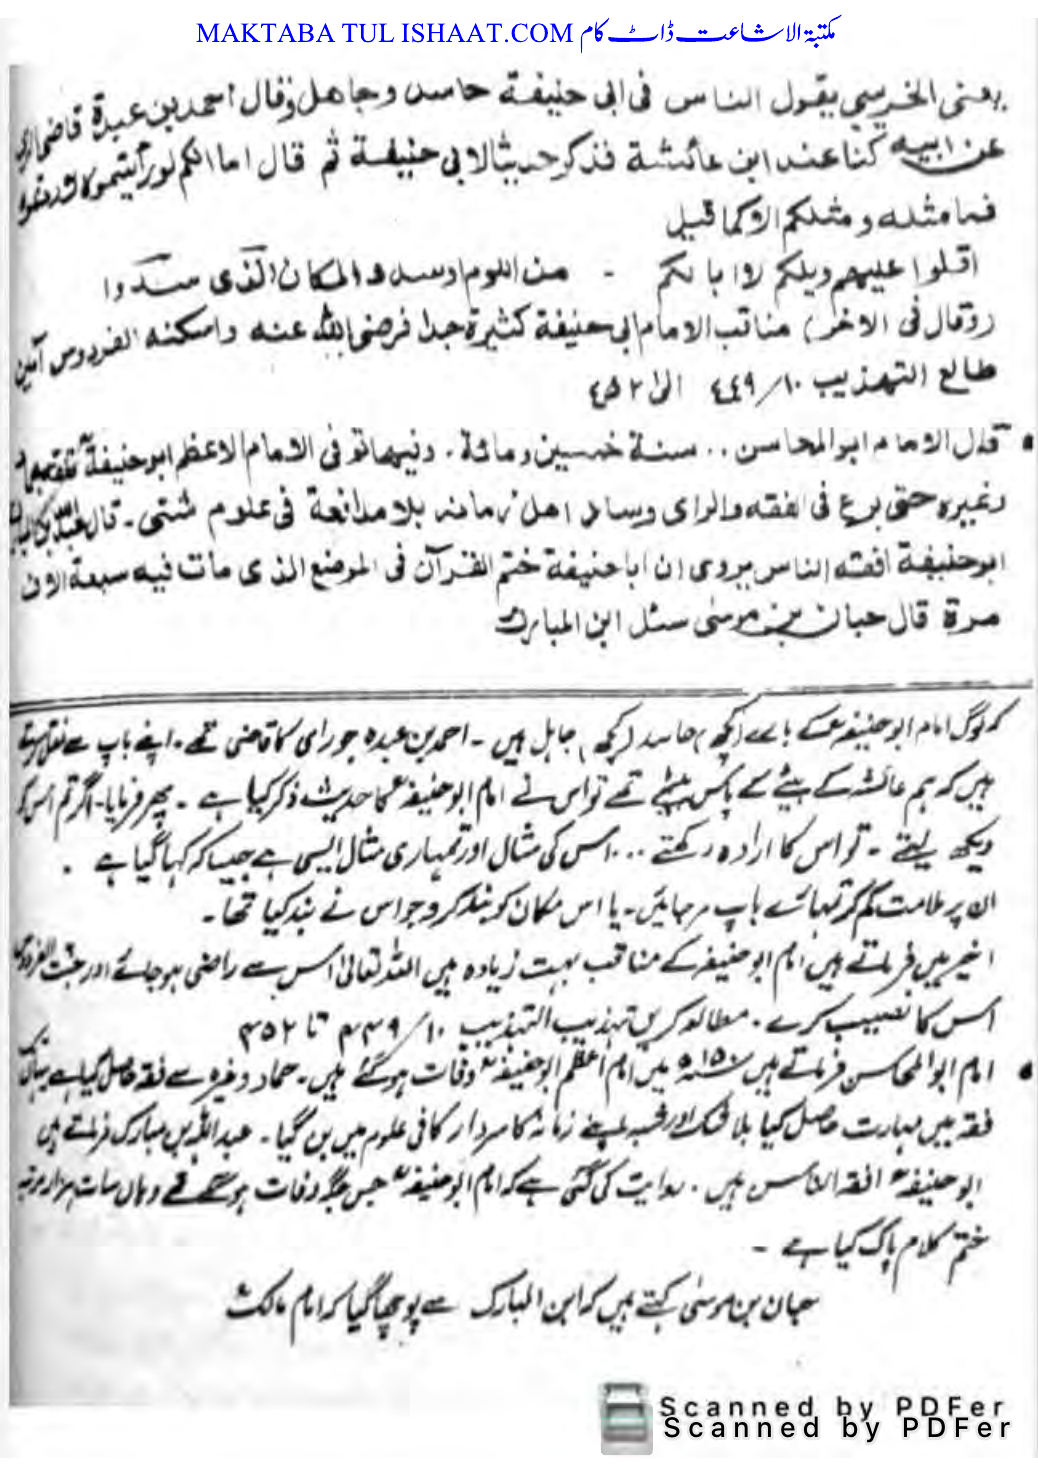 MAKTABA TUL ISHAAT.COM مکتبۃ الاشاعت ڈاٹ کام
یعنی الخریبی یقول الناس فی ابی حنیفة حاسد وجاهل وقال احمد بن عبدة قاضی الری
عن ابیه کنا عند ابن عائشة فذکر حدیثا لابی حنیفة ثم قال اما انکم لو رأیتموه لاردتموه
فما مثله ومثلکم الا کما قیل
اقلوا علیهم ویلکم لا ابا لکم - من اللوم او سدوا المکان الذی سدوا
(وقال فی الاخر) مناقب الامام ابی حنیفة کثیرة جدا فرضی الله عنه واسکنه الفردوس آمین
طالع التهذیب ۱۰/۴۴۹ الی ۴۵۲
• قال الامام ابو المحاسن .. سنة خمسین ومائة . وفیها توفی الامام الاعظم ابو حنیفة تفقه
وغیره حتی برع فی الفقه والرای وساد اهل زمانه بلا مدافعة فی علوم شتی - قال
ابو حنیفة افقه الناس یروی ان ابا حنیفة ختم القرآن فی الموضع الذی مات فیه سبعة الاف
مرة قال حبان بن موسی سئل ابن المبارک
کہ لوگ امام ابو حنیفہ کے بارے (کچھ) حاسد (کچھ) جاہل ہیں - احمد بن عبدہ جو رای کا قاضی تھے - اپنے باپ سے نقل کرتے
ہیں کہ ہم عائشہ کے بیٹے کے پاس بیٹھے تھے تو اس نے امام ابو حنیفہ کا حدیث ذکر کیا ہے - پھر فرمایا - اگر تم اس کو
دیکھ لیتے - تو اس کا ارادہ رکھتے ... اس کی مثال اور تمہاری مثال ایسی ہے جیسا کہ کہا گیا ہے .
ان پر ملامت کم کرو تمہارے باپ مرجائیں - یا اس مکان کو بند کرو جو اس نے بند کیا تھا -
اخیر میں فرماتے ہیں امام ابو حنیفہ کے مناقب بہت زیادہ ہیں اللہ تعالیٰ اس سے راضی ہو جائے اور جنت الفردوس
اس کا نصیب کرے . مطالعہ کریں تہذیب التہذیب ۱۰/۴۴۹ تا ۴۵۲
• امام ابو المحاسن فرماتے ہیں ۱۵۰ھ میں امام اعظم ابو حنیفہ وفات ہو گئے ہیں - حماد وغیرہ سے فقہ حاصل کیا ہے یہاں تک
فقہ میں مہارت حاصل کیا بلا شک اور شبہ اپنے زمانہ کا سردار کافی علوم میں بن گیا - عبد اللہ بن مبارک فرماتے ہیں
ابو حنیفہ افقہ الناس ہیں . روایت کی گئی ہے کہ امام ابو حنیفہ جس جگہ وفات ہو گئے تھے وہاں سات ہزار مرتبہ
ختم کلام پاک کیا ہے -
حبان بن موسیٰ کہتے ہیں کہ ابن المبارک سے پوچھا گیا کہ امام مالک
Scanned by PDFer
Scanned by PDFer